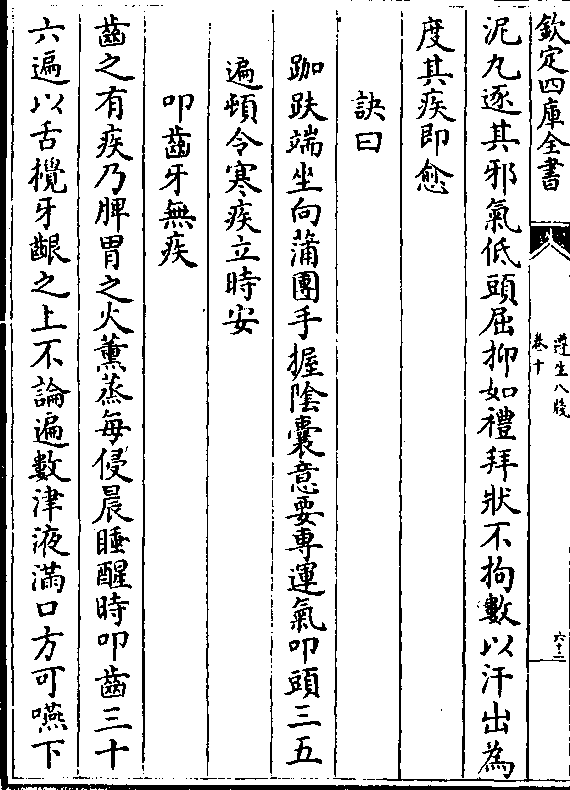 欽定四庫全書
遵生八牋
卷十
六十二
泥九逐其邪氣低頭屈抑如禮拜狀不拘數以汗出為
度其疾即愈
訣曰
跏趺端坐向蒲團手握陰囊意要專運氣叩頭三五
遍頓令寒疾立時安
叩齒牙無疾
齒之有疾乃脾胃之火薰蒸每侵晨睡醒時叩齒三十
六遍以舌攪牙齦之上不論遍數津液滿口方可嚥下